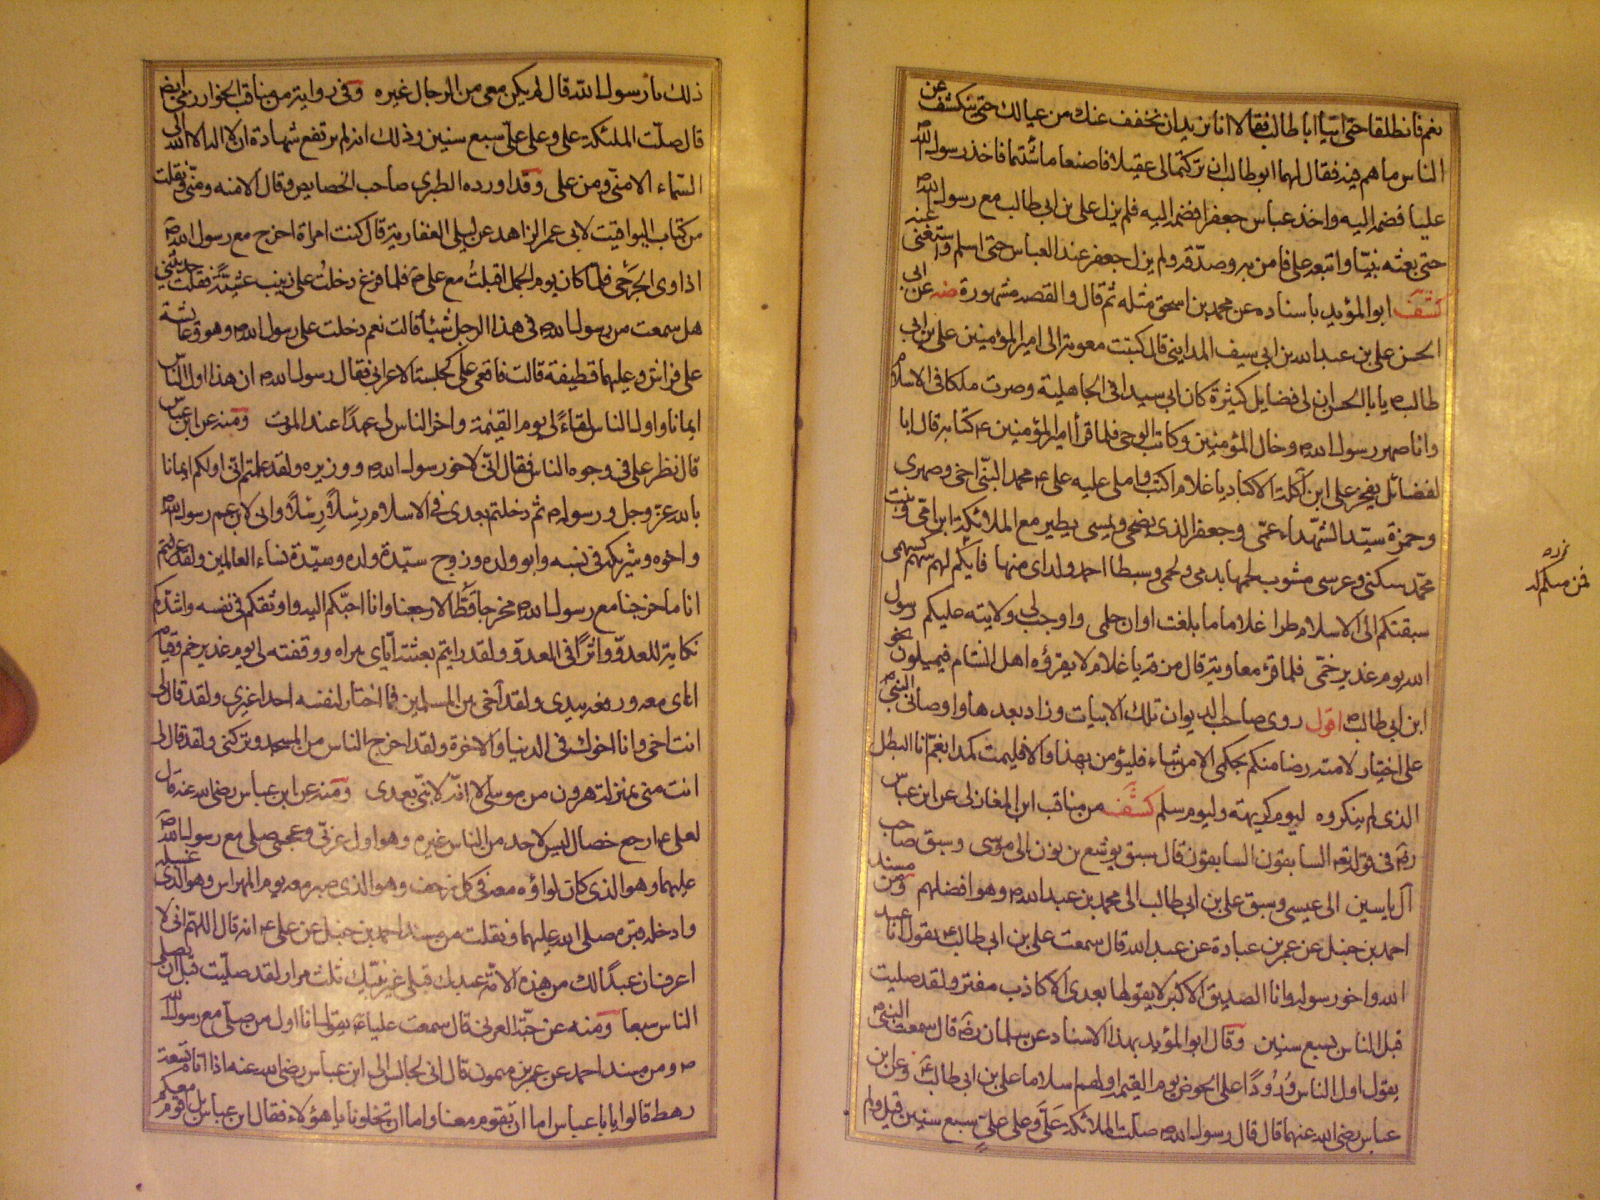 نعم فانطلقا حتى اتيا ابا طالب فقالا انا نريدان نخفف عنك من عيالك حتى ينكشف عن
الناس ما هم فيه فقال لهما ابو طالب ان تركتما لى عقيلا فاصنعا ما شئتما فاخذ رسول الله
عليا فضمه اليه واخذ عباس جعفرا فضمه اليه فلم يزل على بن ابى طالب مع رسول الله
حتى بعثه نبيا واتبعه على فامن به وصدقه ولم يزل جعفر عند العباس حتى اسلم واستغنى عنه
كشف ابو المؤيد باسناده عن محمد بن اسحق مثله ثم قال والقصه مشهورة منه عن ابى
الحسن على بن عبد الله بن ابى سيف المداينى قال كتبت معوية الى امير المؤمنين على بن ابى
طالب يا با الحسن ان لى فضايل كثيرة كان ابى سيدا فى الجاهلية وصرت ملكا فى الاسلام
وانا صهر رسول الله وخال المؤمنين وكاتب الوحى فلما قرأ امير المؤمنين ع كتابه قال ابا
لفضائل يفخر على ابن آكلة الاكباد يا غلام اكتب واملى عليه على ع محمد النبى اخى وصهرى
وحمزة سيد الشهداء عمى وجعفر الذى يضحى ويمسى يطير مع الملائكة ابن امى وبنت
محمد سكنى وعرسى مشوب لحمها بدمى ولحمى وسبطا احمد ولداى منها فايكم لهم سهم كسهمى
سبقتكم الى الاسلام طرا غلاما ما بلغت اوان حلمى واوجب لى ولايته عليكم رسول
الله يوم غدير خمى فلما قرء معاوية قال مزقه يا غلام لا يقرؤه اهل الشام فيميلون نحو
ابن ابى طالب اقول روى صاحب الديوان تلك الابيات وزاد بعدها واوصانى النبى
على اختيار لامته رضا منكم بحكمى الا من شاء فليؤمن بهذا والا فليمت كمدا بغم انا البطل
الذى لم ينكروه ليوم كريهة وليوم سلم كشف من مناقب ابن المغازلى عن ابن عباس
رض فى قوله تع السابقون السابقون قال سبق يوشع بن نون الى موسى وسبق صاحب
آل ياسين الى عيسى وسبق على بن ابى طالب الى محمد بن عبد الله وهو افضلهم ومن مسند
احمد بن حنبل عن عمر بن عبادة عن عبد الله قال سمعت على بن ابى طالب يقول انا عبد
الله واخو رسوله وانا الصديق الاكبر لا يقولها بعدى الا كاذب مفتر ولقد صليت
قبل الناس بسبع سنين وقال ابو المؤيد بهذا الاسناد عن سلمان رض قال سمعت النبى
يقول اول الناس ورودا على الحوض يوم القيمة اولهم اسلاما على بن ابى طالب ع وعن ابن
عباس رضى الله عنهما قال قال رسول الله صلت الملائكة على وعلى على سبع سنين قيل ولم
ذلك يا رسول الله قال لم يكن معى من الرجال غيره وفى رواية من مناقب الخوارزمى ايض
قال صلت الملئكة على وعلى على سبع سنين وذلك انه لم يرتفع شهادة ان لا اله الا الله الى
السماء الا منى ومن على وقد اورده الطبرى صاحب الخصايص وقال الا منه ومنى ونقلت
من كتاب اليواقيت لابى عمر الزاهد عن ليلى الغفارية قال كنت امراة اخرج مع رسول الله
اداوى الجرحى فلما كان يوم الجمل اقبلت مع على ع فلما فرغ دخلت على زينب عشية فقلت حدثينى
هل سمعت من رسول الله فى هذا الرجل شيئا قالت نعم دخلت على رسول الله وهو وعايشة
على فراش وعليهما قطيفة قالت فاقعى على كجلسة الاعرابى فقال رسول الله ان هذا اول الناس
ايمانا واول الناس لقاء لى يوم القيمة واخر الناس لى عهدا عند الموت ومنه عن ابن عباس
قال نظر على فى وجوه الناس فقال انى لاخو رسول الله ووزيره ولقد علمتم انى اولكم ايمانا
بالله عز وجل ورسوله ثم دخلتم بعدى فى الاسلام رسلا رسلا وانى لابن عم رسول الله
واخوه وشريكه فى نسبه وابو ولده وزوج سيدة ولده وسيدة نساء العالمين ولقد عرفتم
انا ما خرجنا مع رسول الله مخرجا قط الا رجعنا وانا احبكم اليه واوثقكم فى نفسه واشدكم
نكاية للعدو واثرا فى العدو ولقد رايتم بعثته اياى ببراه ووقفته لى يوم غدير خم وقيامه
اياى معه ورفعه بيدى ولقد آخى بين المسلمين فما اختار لنفسه احدا غيرى ولقد قال لى
انت اخى وانا اخوك فى الدنيا والاخرة ولقد اخرج الناس من المسجد وتركنى ولقد قال لى
انت منى بمنزلة هرون من موسى الا انه لا نبى بعدى ومنه عن ابن عباس رضى الله عنه قال
لعلى ع اربع خصال ليس لاحد من الناس غيره هو اول عربى وعجمى صلى مع رسول الله
عليهما وهو الذى كان لواؤه معه فى كل زحف وهو الذى صبر معه يوم المهراس وهو الذى غسله
وادخله قبره صلى الله عليهما ونقلت من مسند احمد بن حنبل عن على ع انه قال اللهم انى لا
اعرف ان عبدا لك من هذه الامة عبدك قبلى غير نبيك ثلث مرار ولقد صليت قبل ان يصلى
الناس سبعا ومنه عن حبة العرنى قال سمعت عليا ع يقول انا اول من صلى مع رسول الله
ص ومن مسند احمد عن عمر بن ميمون قال انى لجالس الى ابن عباس رضى الله عنه اذ اتاه تسعة
رهط قالوا يا با عباس اما ان تقوم معنا واما ان تخلونا يا هؤلاء فقال ابن عباس بل اقوم معكم